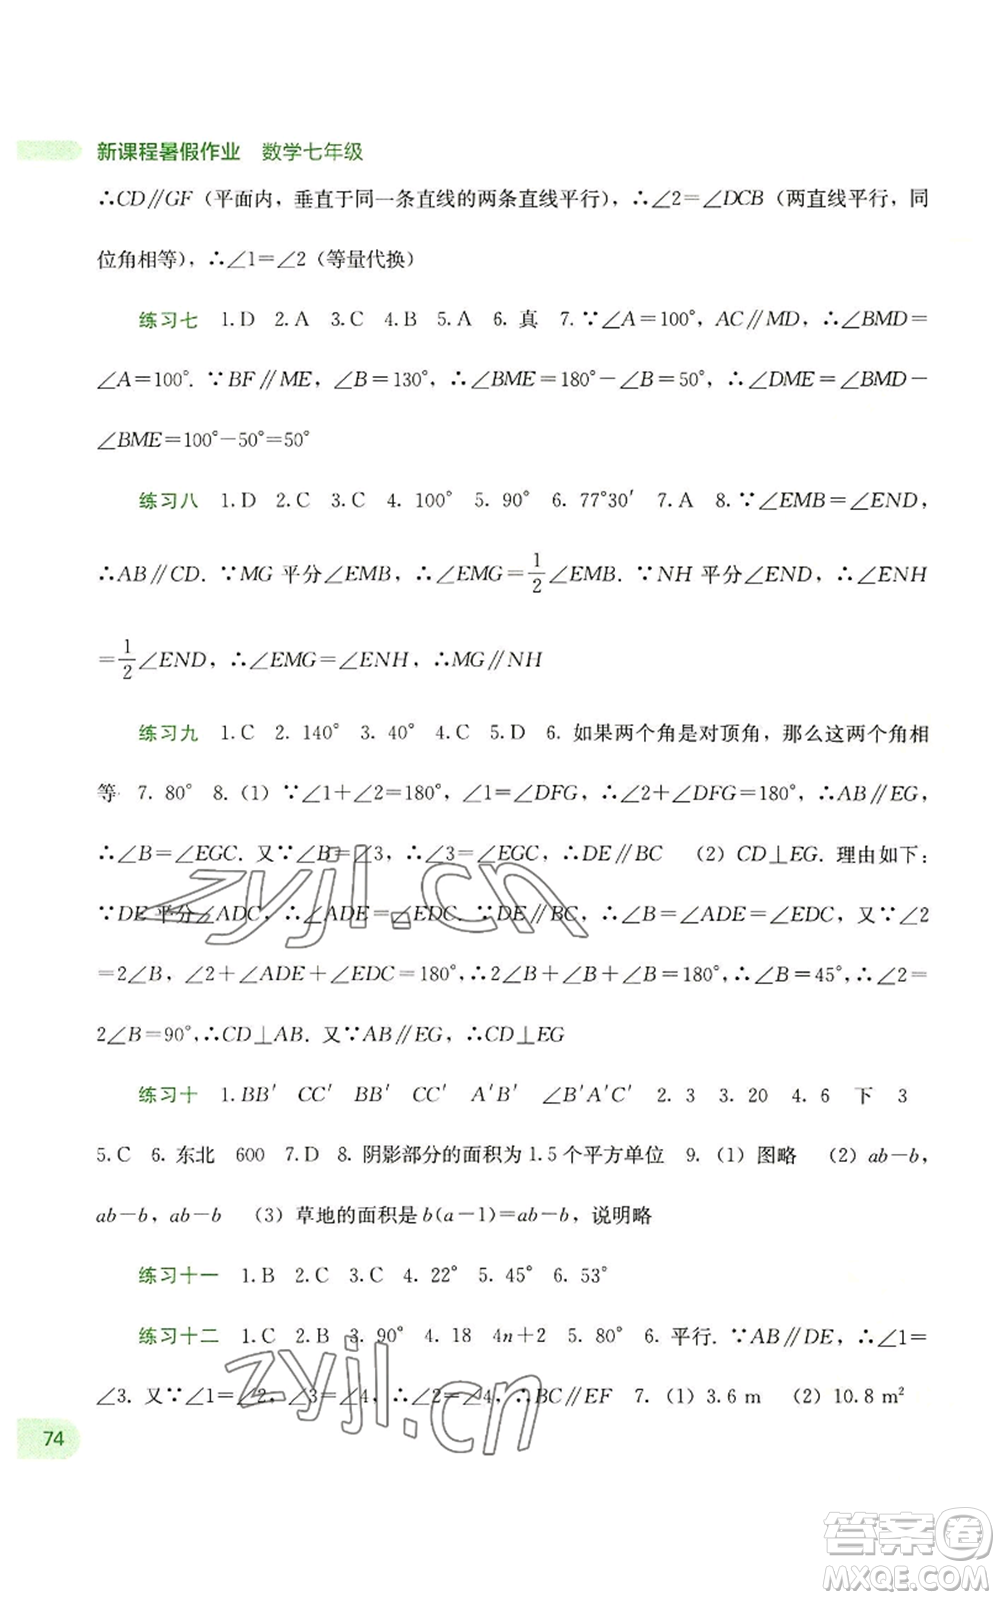 新课程暑假作业 数学七年级
∴CD∥GF（平面内，垂直于同一条直线的两条直线平行），∴∠2=∠DCB（两直线平行，同
位角相等），∴∠1=∠2（等量代换）
练习七 1.D 2.A 3.C 4.B 5.A 6. 真 7.∵∠A=100°，AC∥MD，∴∠BMD=
∠A=100°. ∵BF∥ME，∠B=130°，∴∠BME=180°-∠B=50°，∴∠DME=∠BMD-
∠BME=100°-50°=50°
练习八 1.D 2.C 3.C 4. 100° 5. 90° 6. 77°30′ 7.A 8.∵∠EMB=∠END，
∴AB∥CD. ∵MG 平分∠EMB，∴∠EMG=1/2∠EMB. ∵NH 平分∠END，∴∠ENH
=1/2∠END，∴∠EMG=∠ENH，∴MG∥NH
练习九 1.C 2. 140° 3. 40° 4.C 5.D 6. 如果两个角是对顶角，那么这两个角相
等. 7. 80° 8.(1) ∵∠1+∠2=180°，∠1=∠DFG，∴∠2+∠DFG=180°，∴AB∥EG，
∴∠B=∠EGC. 又∵∠B=∠3，∴∠3=∠EGC，∴DE∥BC （2）CD⊥EG. 理由如下：
∵DE平分∠ADC，∴∠ADE=∠EDC. ∵DE∥BC，∴∠B=∠ADE=∠EDC，又∵∠2
=2∠B，∠2+∠ADE+∠EDC=180°,∴2∠B+∠B+∠B=180°,∴∠B=45°,∴∠2=
2∠B=90°,∴CD⊥AB. 又∵AB∥EG，∴CD⊥EG
练习十 1.BB′ CC′ BB′ CC′ A′B′ ∠B′A′C′ 2. 3 3. 20 4. 6 下 3
5.C 6. 东北 600 7.D 8. 阴影部分的面积为 1.5 个平方单位 9.（1）图略 （2）ab-b，
ab-b，ab-b （3）草地的面积是 b(a-1)=ab-b，说明略
练习十一 1.B 2.C 3.C 4. 22° 5. 45° 6. 53°
练习十二 1.C 2.B 3. 90° 4. 18 4n+2 5. 80° 6. 平行. ∵AB∥DE，∴∠1=
∠3. 又∵∠1=∠2，∠3=∠4，∴∠2=∠4，∴BC∥EF 7.（1）3.6 m （2）10.8 m²
74
zyjl.cn
zyjl.cn
答案卷
MXQE.COM